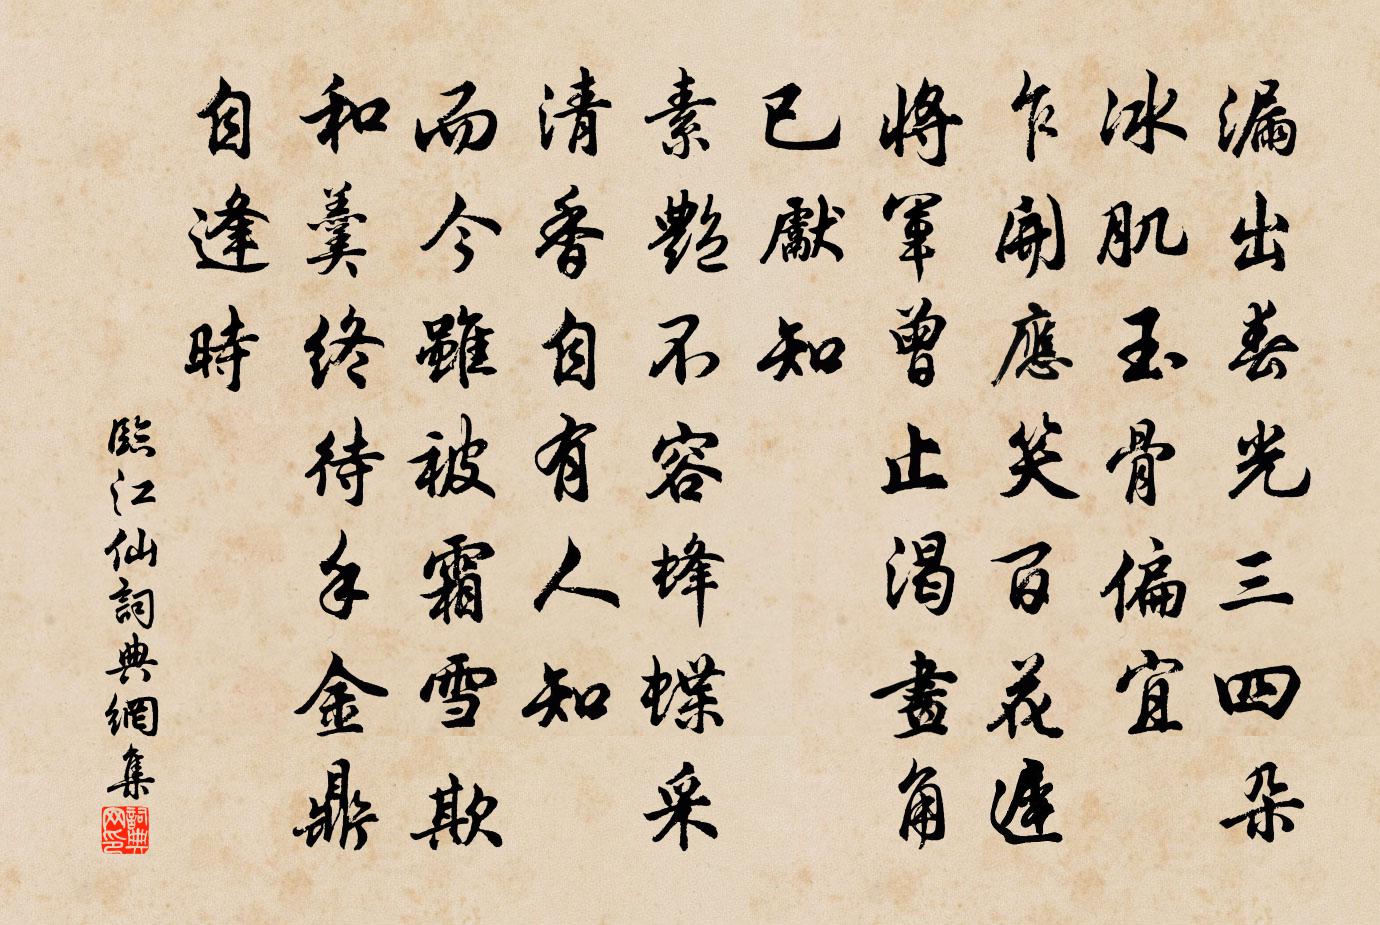 漏出春光三四朵
冰肌玉骨偏宜
乍開應笑百花遲
將軍曾止渴畫角
已獻知
素艷不容蜂蝶采
清香自有人知
而今雖被霜雪欺
和羹終待手金鼎
自逢時
臨江仙詞典網集
詞典
网印